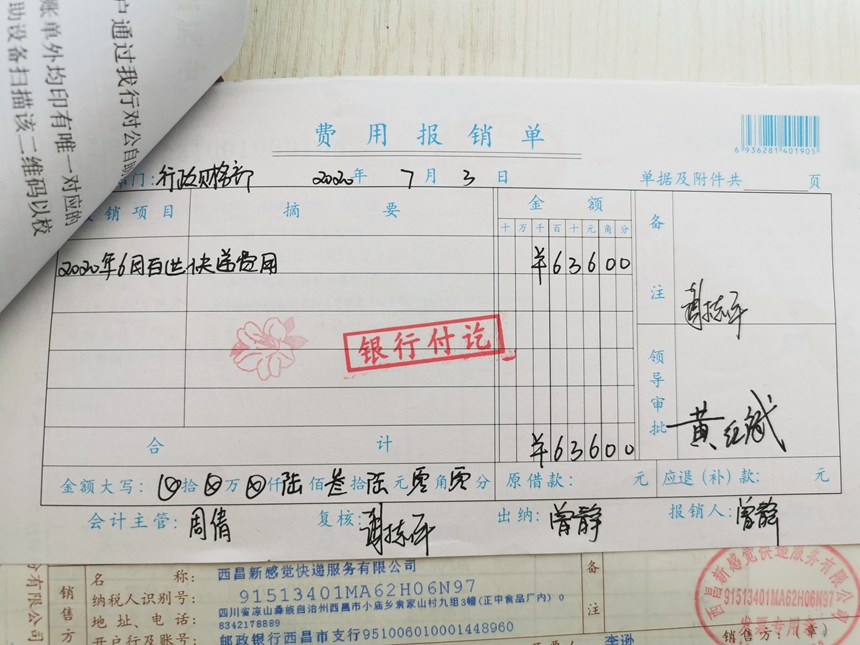 户通过我行对公自助
账单外均印有唯一对应的
助设备扫描该二维码以校
费用报销单
6 936281 401905
部门:行政财务部 2020年 7月 3日 单据及附件共 页
报销项目 摘要 金额 备注
十 万 千 百 十 元 角 分
2020年6月百世快递费用 ¥63600
银行付讫
领导审批 黄红斌
合计 ¥63600
金额大写: 拾 万 仟陆佰叁拾陆元零角零分 原借款: 元 应退(补)款: 元
会计主管:周倩 复核: 出纳:曾静 报销人:曾静
份有限公司
销售方
名称:西昌新感觉快递服务有限公司
纳税人识别号:91513401MA62H06N97
地址、电话:四川省凉山彝族自治州西昌市小庙乡袁家山村九组3幢(正中食品厂内) 0
8342178889
开户行及账号:邮政银行西昌市支行951006010001448960
备注
西昌新感觉快递服务有限公司
91513401MA62H06N97
发票专用章
李逊
销售方:(章)